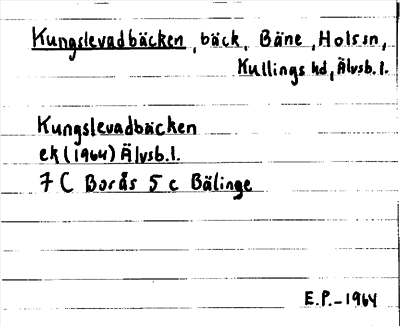 Kungslevadbäcken, bäck, Bäne, Holssn,
Kullings hd, Älvsb. l.
Kungslevadbäcken
ek (1964) Älvsb. l.
7 C Borås 5 c Bälinge
E.P. - 1964